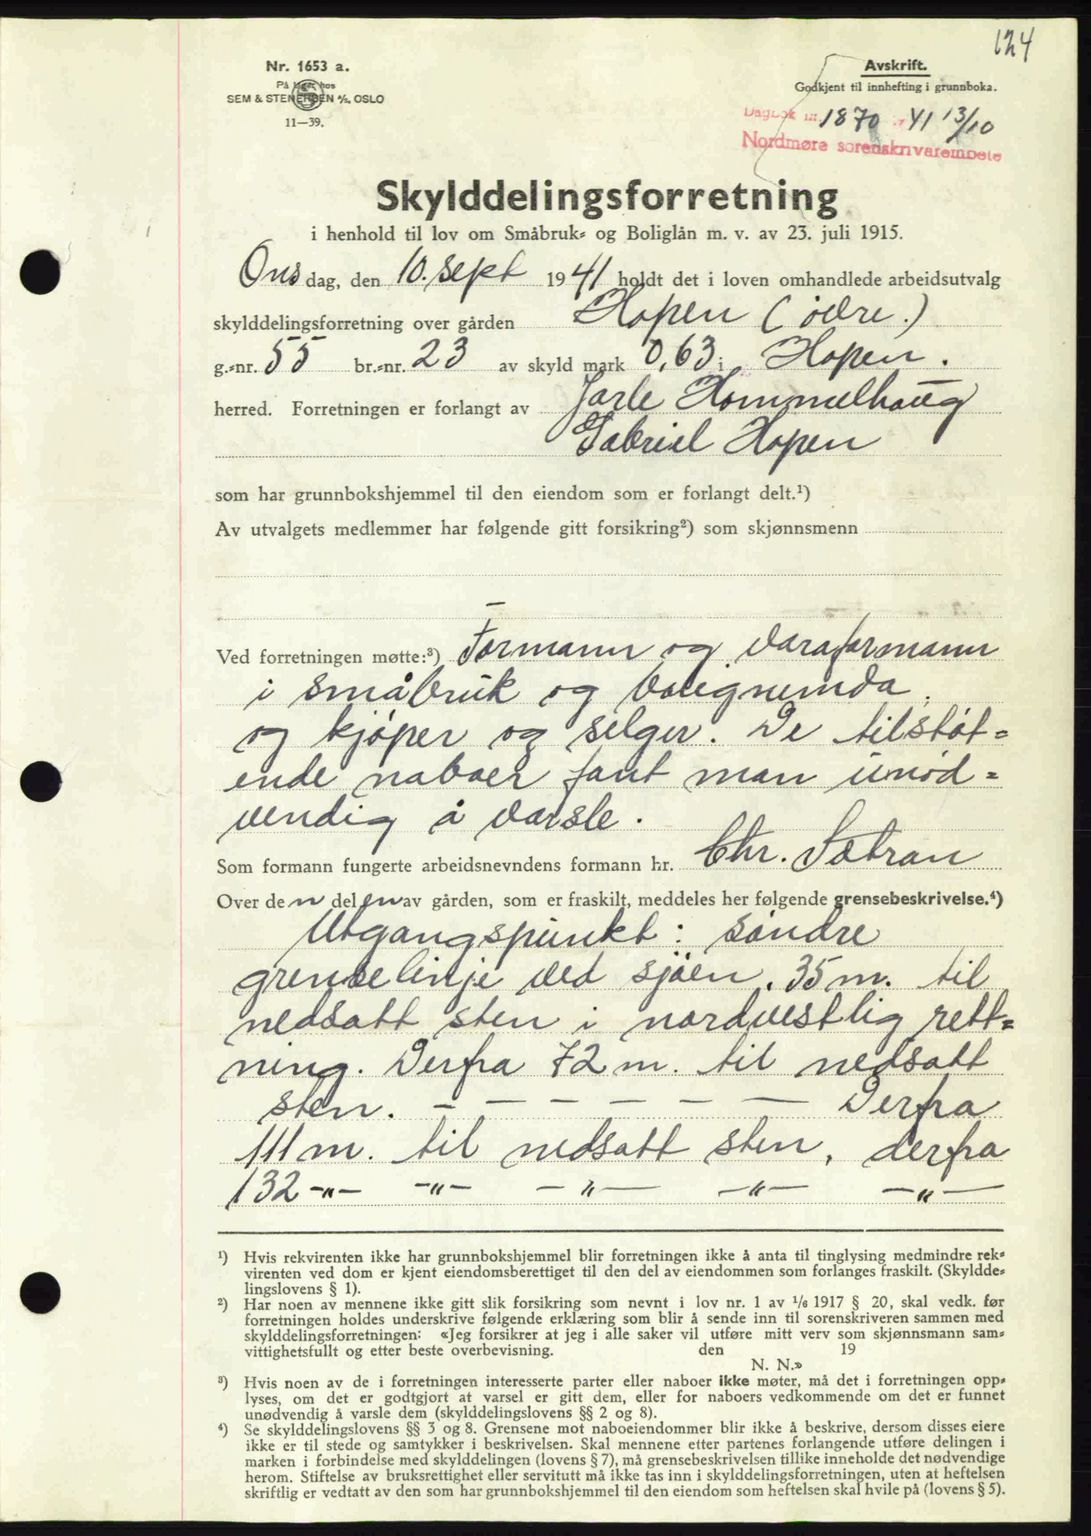 124
Nr. 1653 a.
På lager hos
SEM & STENERSEN A/S, OSLO
11—39.
Avskrift.
Godkjent til innhefting i grunnboka.
Dagbok nr. 1870 41 13/10
Nordmøre sorenskrivarembete
Skylddelingsforretning
i henhold til lov om Småbruk- og Boliglån m. v. av 23. juli 1915.
Onsdag, den 10. sept 1941 holdt det i loven omhandlede arbeidsutvalg
skylddelingsforretning over gården Hopen (övre.)
g.-nr. 55 br.-nr. 23 av skyld mark 0,63 i Hopen.
herred. Forretningen er forlangt av Jarle Hommelhaug
Gabriel Hopen
som har grunnbokshjemmel til den eiendom som er forlangt delt.¹)
Av utvalgets medlemmer har følgende gitt forsikring²) som skjønnsmenn
Ved forretningen møtte:³) Formann og varaformann
i småbruk og bolignemda,
og kjöper og selger. De tilstöt-
ende naboer fant man unöd-
vendig å varsle.
Som formann fungerte arbeidsnevndens formann hr. Chr. Sætran
Over den delen av gården, som er fraskilt, meddeles her følgende grensebeskrivelse.⁴)
Utgangspunkt: söndre
grenselinje ved sjöen. 35 m. til
nedsatt sten i nordvestlig rett-
ning. Derfra 72 m. til nedsatt
sten. — — — — — — Derfra
111 m. til nedsatt sten, derfra
132 -"- -"- —"— —"— —"—
¹) Hvis rekvirenten ikke har grunnbokshjemmel blir forretningen ikke å anta til tinglysing medmindre rek-
virenten ved dom er kjent eiendomsberettiget til den del av eiendommen som forlanges fraskilt. (Skyldde-
lingslovens § 1).
²) Har noen av mennene ikke gitt slik forsikring som nevnt i lov nr. 1 av 1/6 1917 § 20, skal vedk. før
forretningen holdes underskrive følgende erklæring som blir å sende inn til sorenskriveren sammen med
skylddelingsforretningen: «Jeg forsikrer at jeg i alle saker vil utføre mitt verv som skjønnsmann sam-
vittighetsfullt og etter beste overbevisning. den 19
N. N.»
³) Hvis noen av de i forretningen interesserte parter eller naboer ikke møter, må det i forretningen opp-
lyses, om det er godtgjort at varsel er gitt dem, eller for naboers vedkommende om det er funnet
unødvendig å varsle dem (skylddelingslovens §§ 2 og 8).
⁴) Se skylddelingslovens §§ 3 og 8. Grensene mot naboeiendommer blir ikke å beskrive, dersom disses eiere
ikke er til stede og samtykker i beskrivelsen. Skal mennene etter partenes forlangende utføre delingen i
marken i forbindelse med skylddelingen (lovens § 7), må grensebeskrivelsen tillike inneholde det nødvendige
herom. Stiftelse av bruksrettighet eller servitutt må ikke tas inn i skylddelingsforretningen, uten at heftelsen
skriftlig er vedtatt av den som har grunnbokshjemmel til den eiendom som heftelsen skal hvile på (lovens § 5).